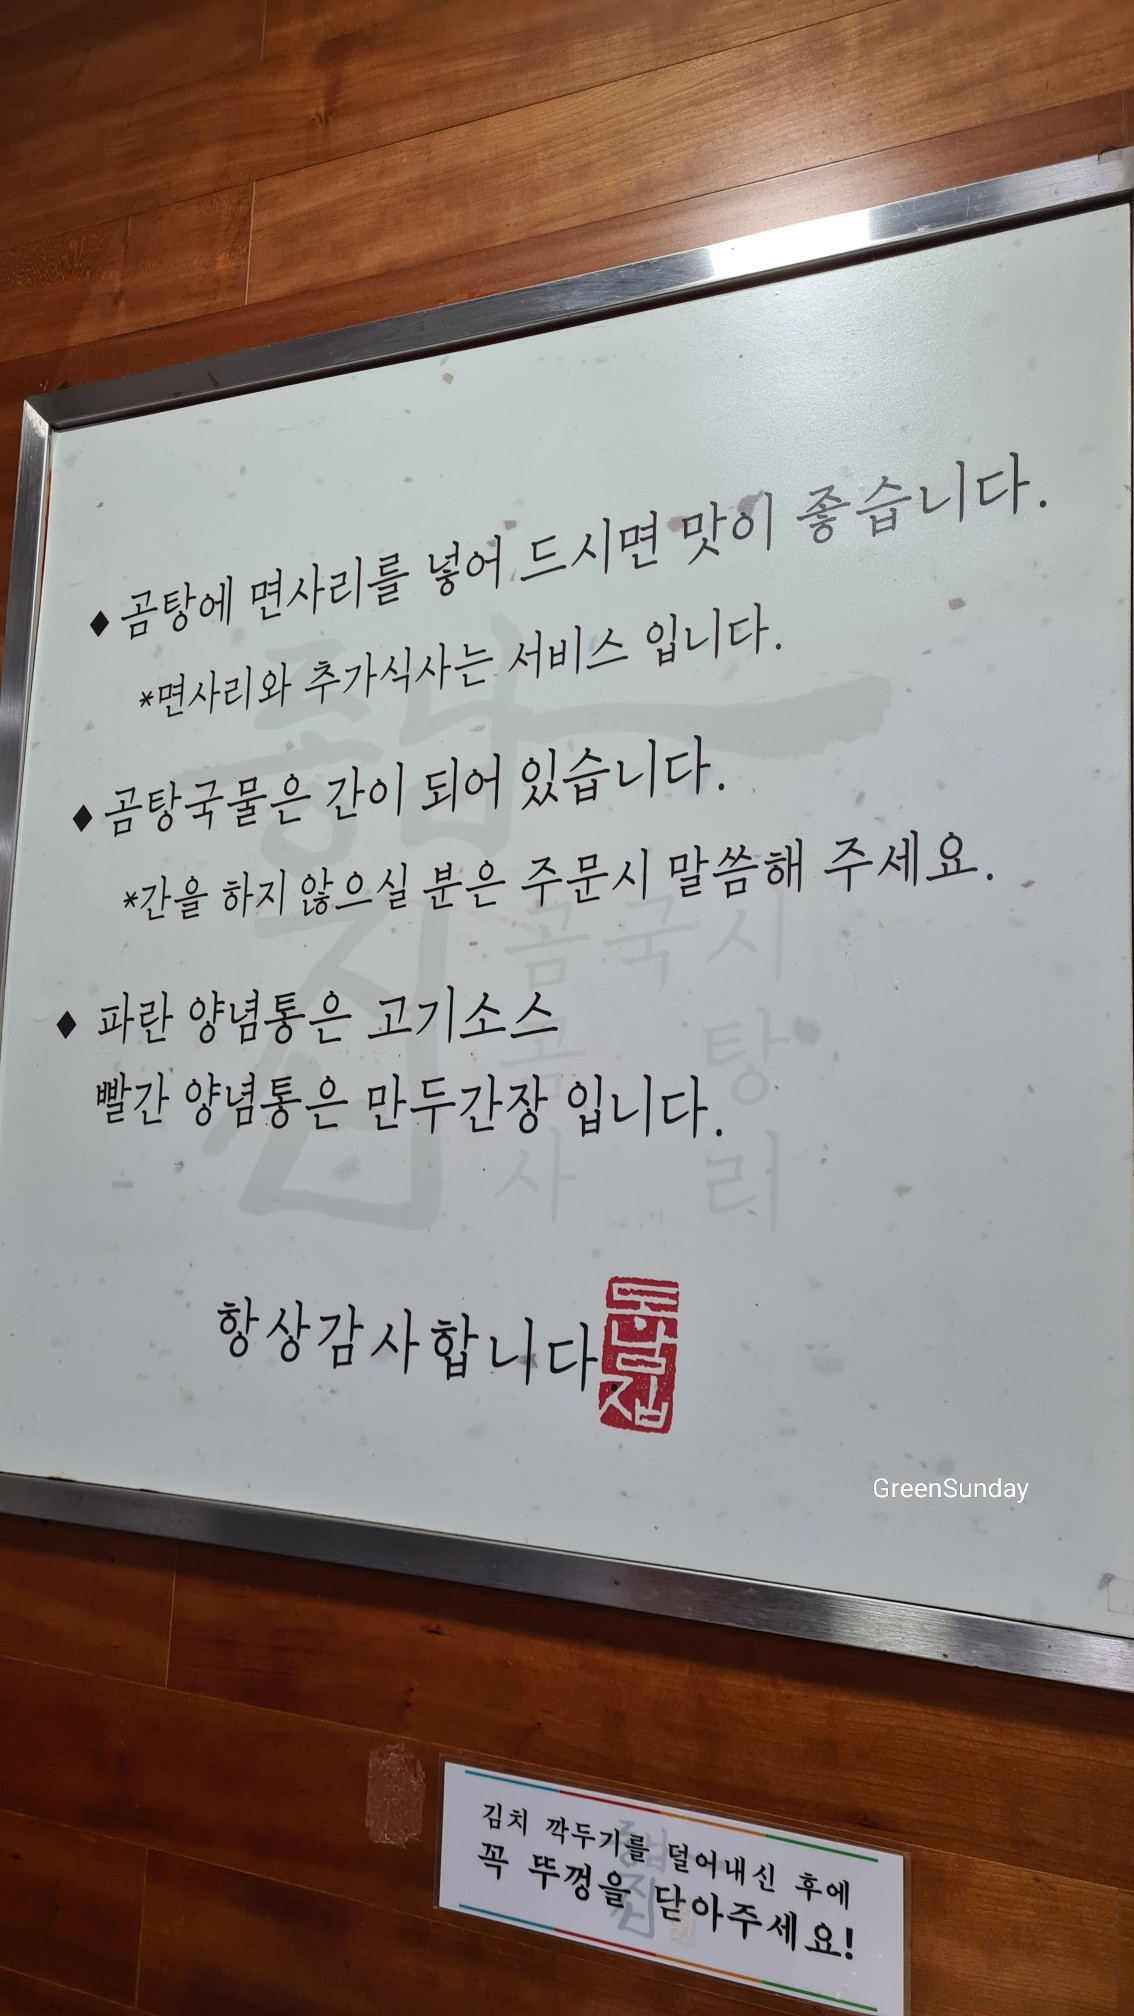 ◆ 곰탕에 면사리를 넣어 드시면 맛이 좋습니다.
*면사리와 추가식사는 서비스 입니다.
◆ 곰탕국물은 간이 되어 있습니다.
*간을 하지 않으실 분은 주문시 말씀해 주세요.
◆ 파란 양념통은 고기소스
빨간 양념통은 만두간장 입니다.
항상감사합니다.
GreenSunday
김치 깍두기를 덜어내신 후에
꼭 뚜껑을 닫아주세요!